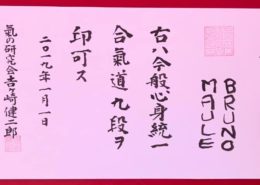 BRUNO
MAULE
右ハ今般心身統一
合氣道九段ヲ
印可ス
二〇一九年一月一日
氣の研究会吉ヶ崎健二郎